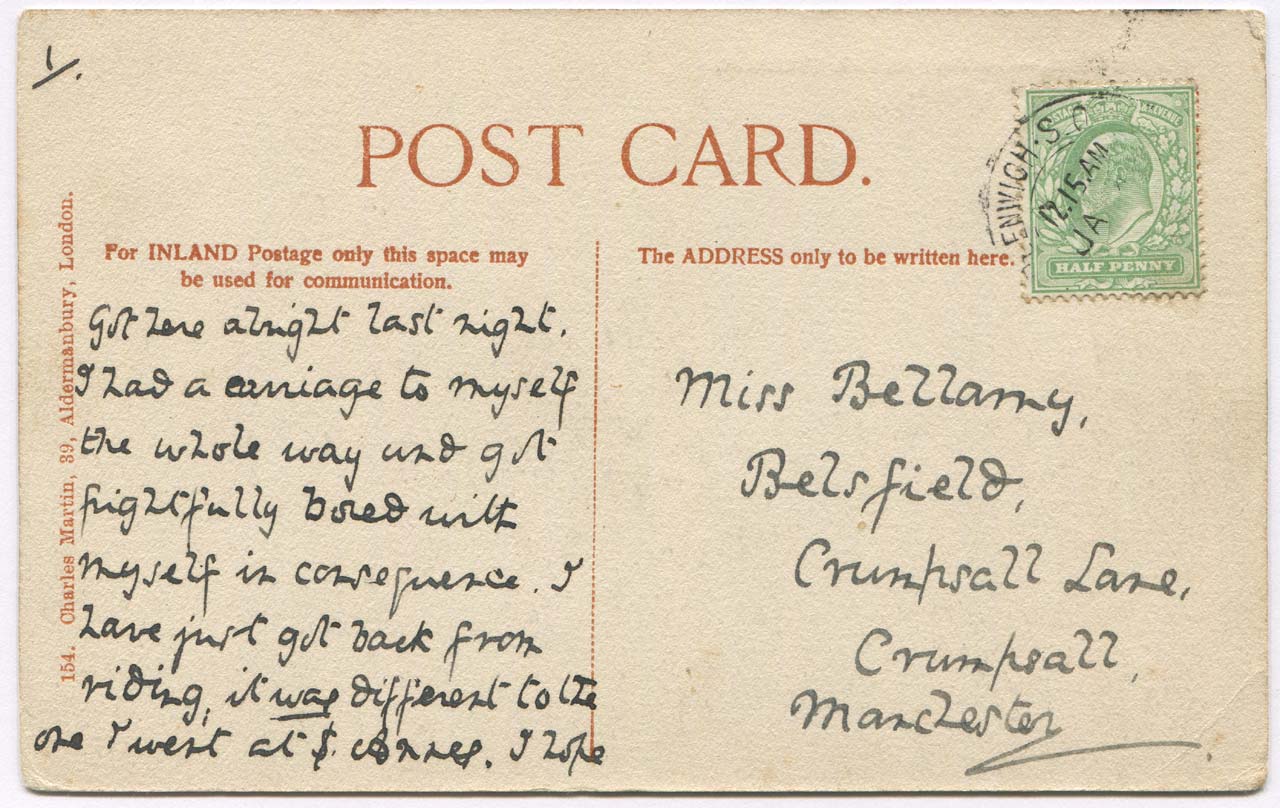 1/.
POST CARD.
ENWICH·S.O
12.15.AM
JA
HALF PENNY
For INLAND Postage only this space may
be used for communication.
The ADDRESS only to be written here.
154. Charles Martin, 39, Aldermanbury, London.
Got here alright last night.
I had a carriage to myself
the whole way and got
frightfully bored with
myself in consequence. I
have just got back from
riding, it was different to the
one I went at S. I hope
Miss Bellamy,
Belsfield,
Crumpsall Lane,
Crumpsall,
Manchester